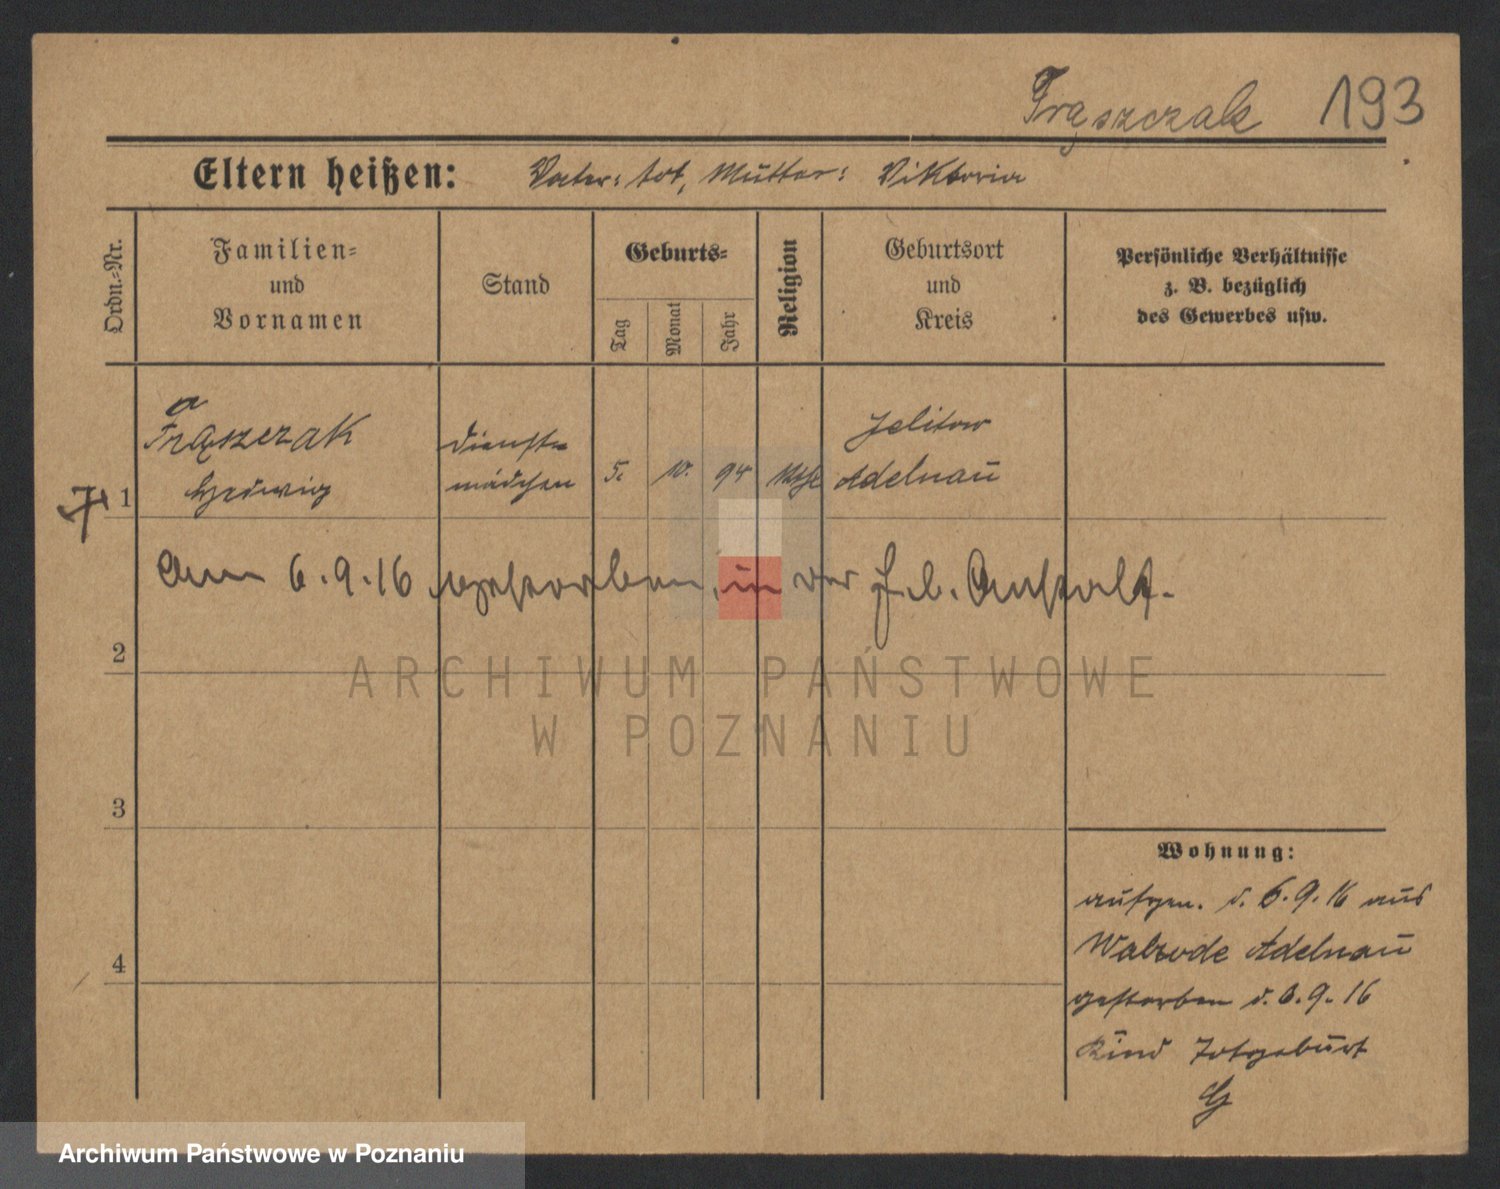 Frąszczak 193
Eltern heißen: Vater: tot, Mutter: Viktoria
Ordn.-Nr.
Familien-
und
Vornamen
Stand
Geburts-
Tag
Monat
Jahr
Religion
Geburtsort
und
Kreis
Persönliche Verhältnisse
z. B. bezüglich
des Gewerbes usw.
1
Frąszczak
Hedwig
Dienst-
mädchen
5. 10. 94 kath
Jelitow
Adelnau
Am 6.9.16 gestorben in der H. Anstalt.
2
3
4
ARCHIWUM PAŃSTWOWE
W POZNANIU
Wohnung:
aufgen. d. 6.9.16 aus
Adelnau
gestorben d. 6.9.16
Kind Totgeburt
G
Archiwum Państwowe w Poznaniu